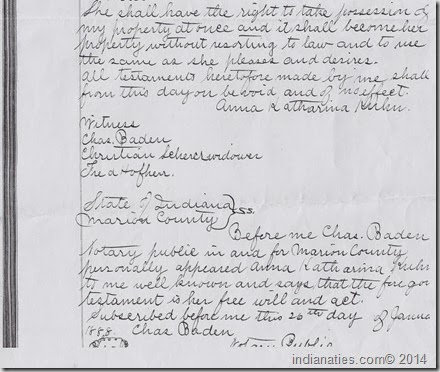 She shall have the right to take possession of
my property at once and it shall become her
property without resorting to law and to use
the same as she pleases and desires.
All testaments heretofore made by me shall
from this day on be void and of no effect.
Anna Katharina Kuhn.
Witness
Chas. Baden
Christian
Fred Hofher.
State of Indiana } SS.
Marion County
Before me Chas. Baden
Notary public in and for Marion County
personally appeared Anna Katharina Kuhn
to me well known and says that the foregoi
testament is her free will and act.
Subscribed before me this 26th day of Janua
1888. Chas Baden
Notary Public
indianaties.com© 2014